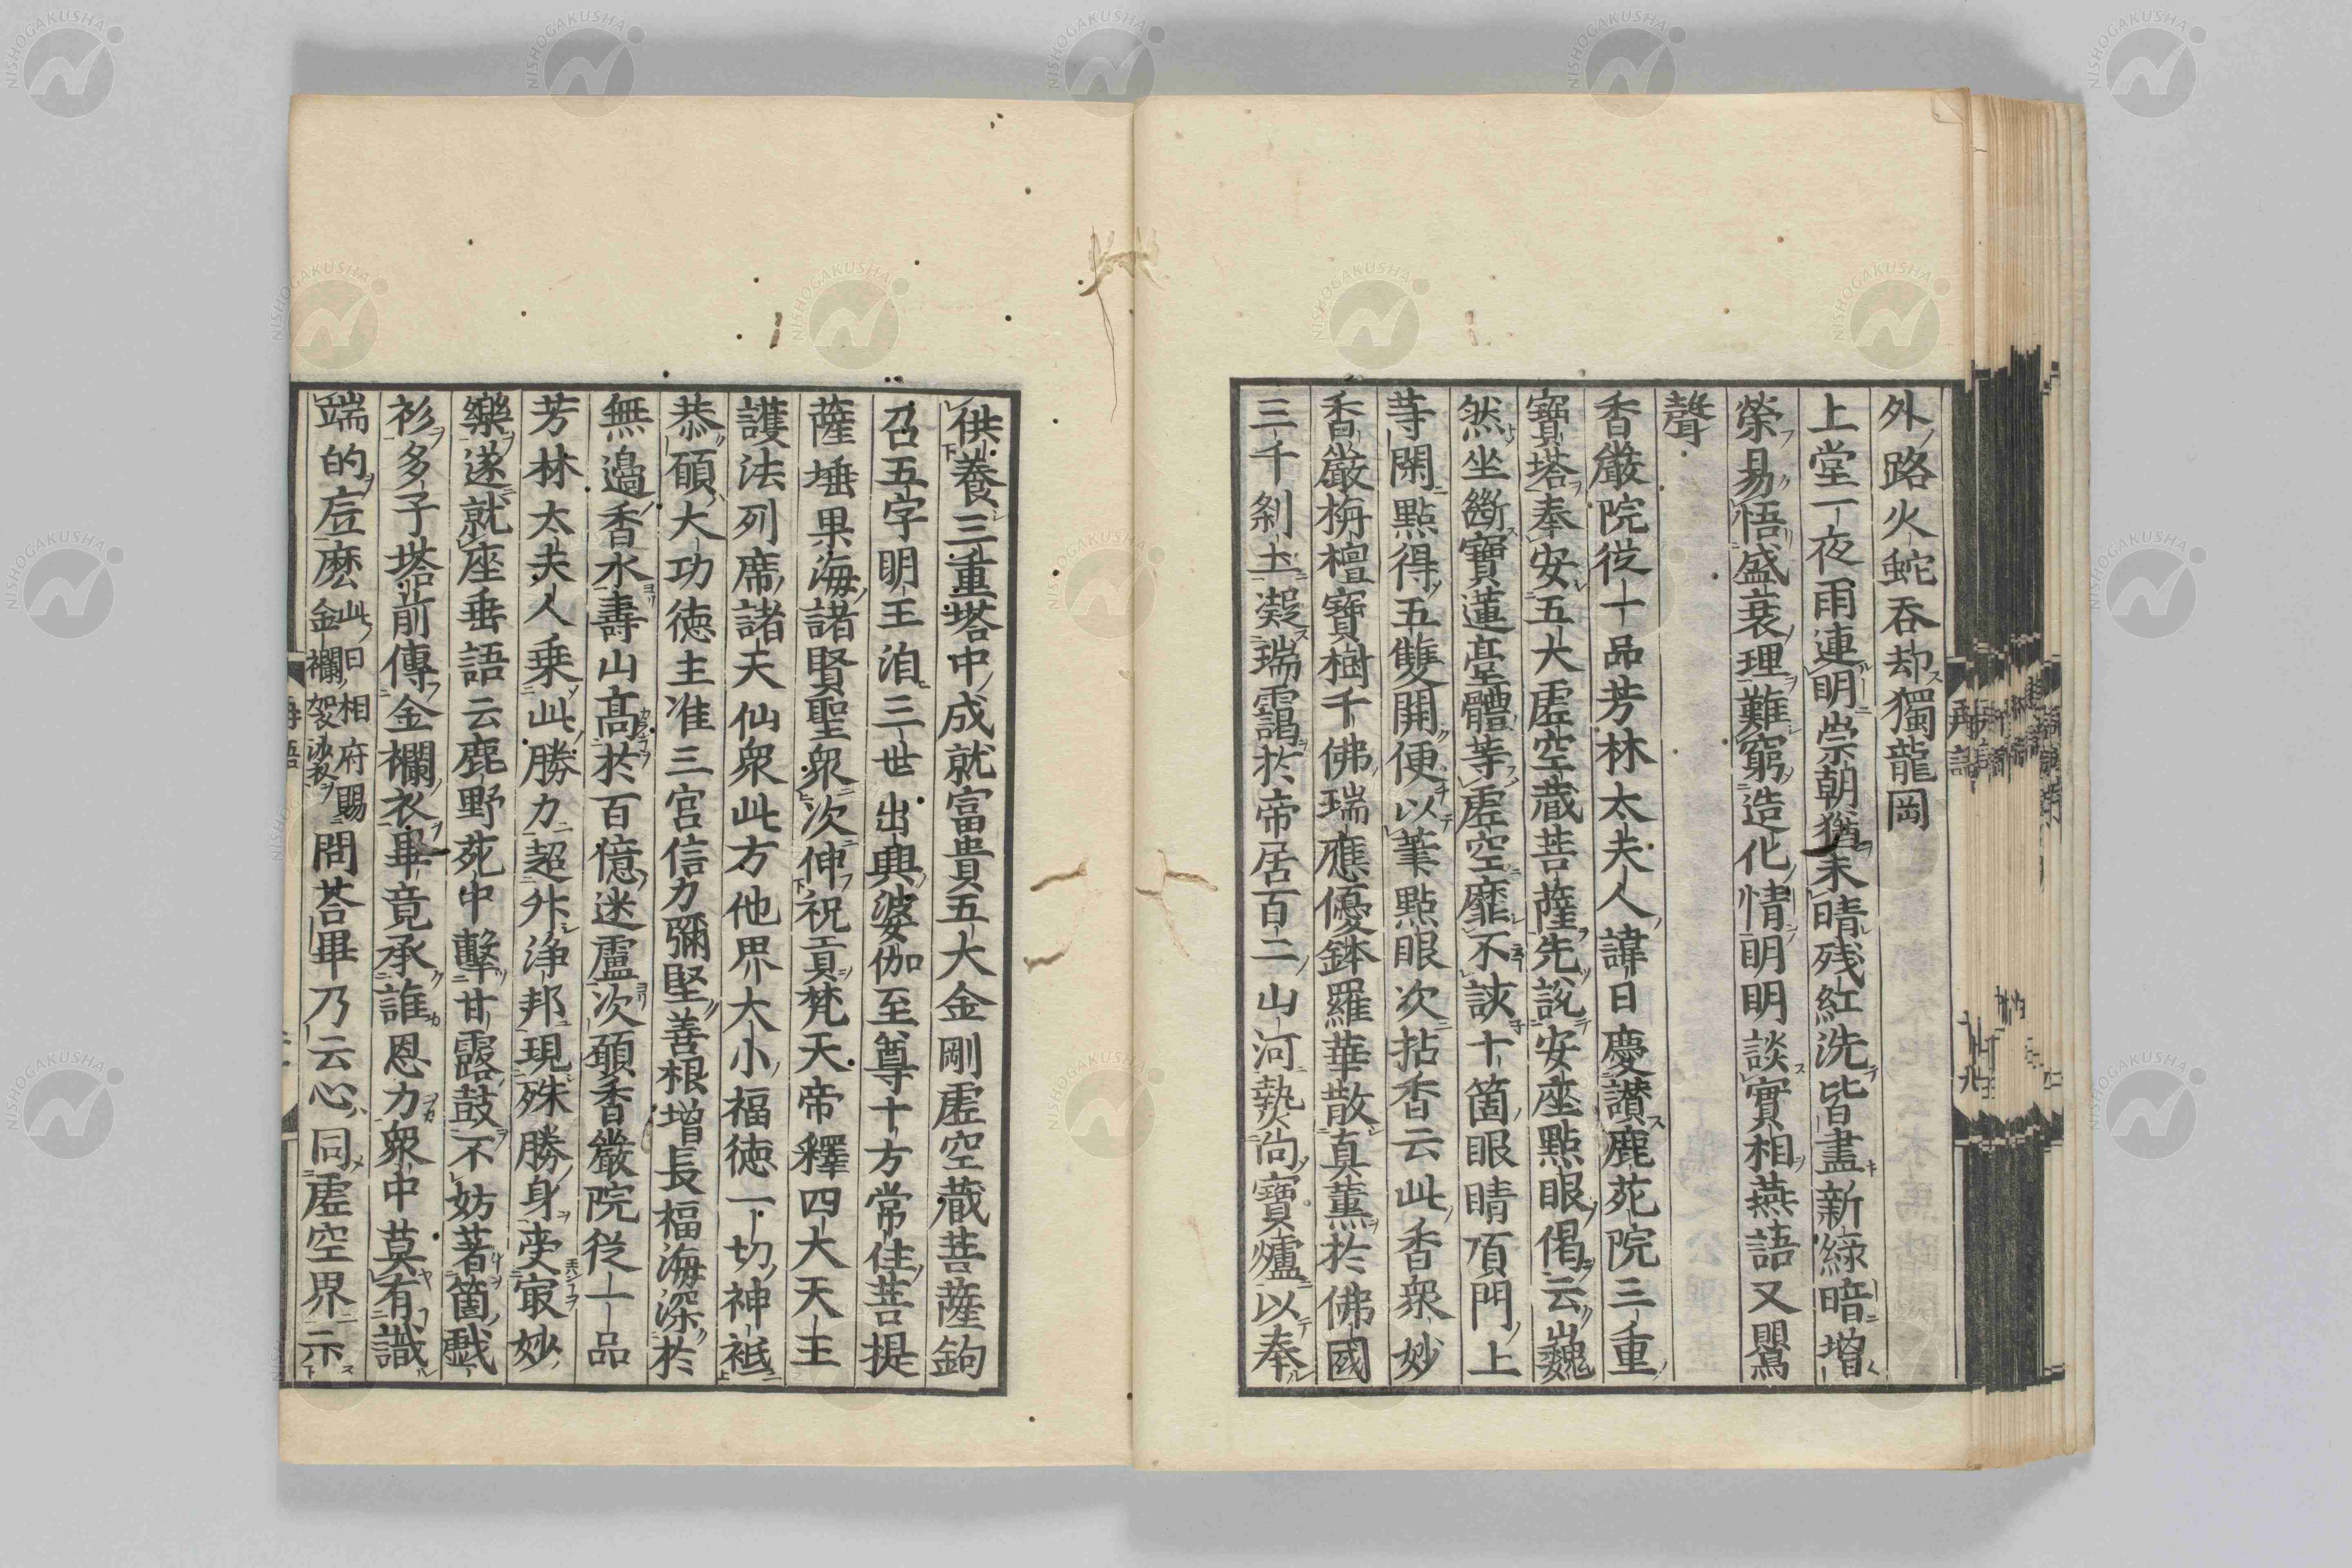 外路火蛇吞却獨龍岡
上堂一夜雨連明崇朝猶未晴残紅洗皆盡新緑暗増
榮易悟盛衰理難窮造化情明明談實相燕語又鸎
聲
香嚴院從一品芳林太夫人諱日慶讃鹿苑院三重
寶塔奉安五大虛空蔵菩薩先說安座點眼偈云巍
然坐斷寶蓮臺體等虛空靡不該十箇眼睛頂門上
等閑點得五雙開便以筆點眼次拈香云此香衆妙
香嚴栴檀寶樹千佛瑞應優鉢羅華散真薫於佛國
三千刹土凝瑞靄於帝居百二山河爇向寶爐以奉
供養三重塔中成就富貴五大金剛虛空蔵菩薩鉤
召五字明王洎三世出興婆伽至尊十方常住菩提
薩埵果海諸賢聖衆次伸祝貢梵天帝釋四大天主
護法列席諸天仙衆此方他界大小福徳一切神祇
恭願大功徳主准三宮信力彌堅善根増長福海深於
無邉香水壽山髙於百億迷盧次願香嚴院從一品
芳林太夫人乗此勝力超升浄邦現殊勝身受㝡妙
樂遂就座垂語云鹿野苑中擊甘露鼓不妨著箇戯
衫多子塔前傳金襴衣畢竟承誰恩力衆中莫有識
端的底麽此日相府賜金襴袈裟問荅畢乃云心同虛空界示